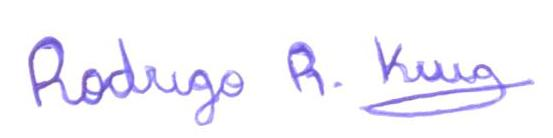 Rodrigo R. King